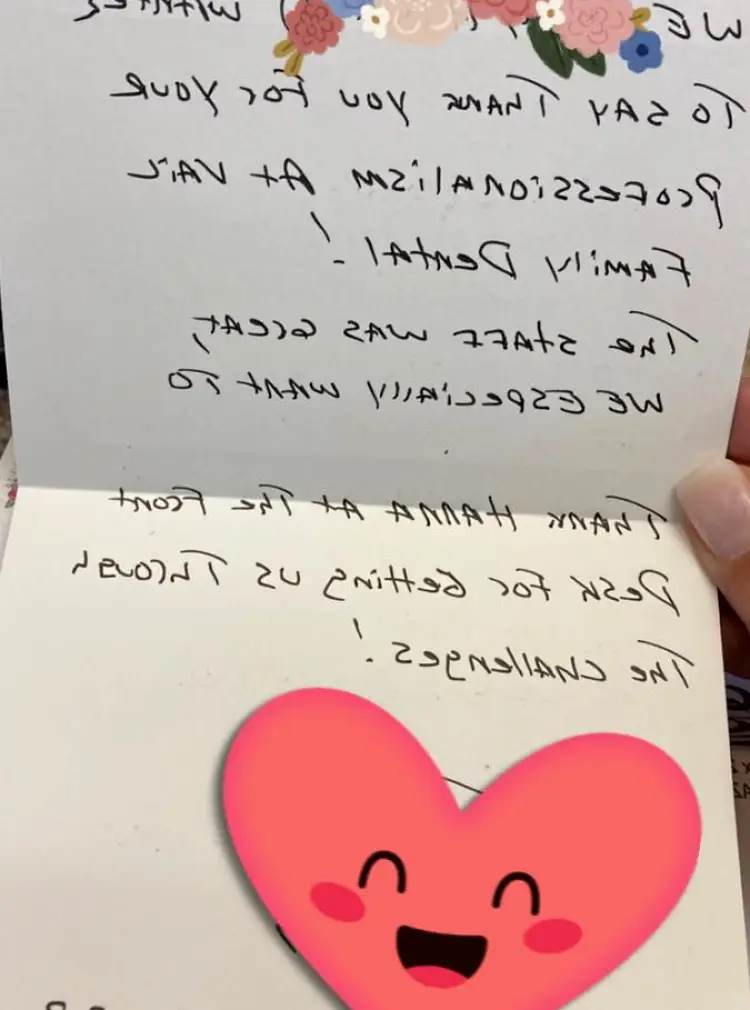 WE
TO SAY THANK YOU FOR YOUR
PROFESSIONALISM AT VAIL
FAMILY DENTAL!
THE STAFF WAS GREAT,
WE ESPECIALLY WANT TO
THANK HANNA AT THE FRONT
DESK FOR GETTING US THROUGH
THE CHALLENGES!